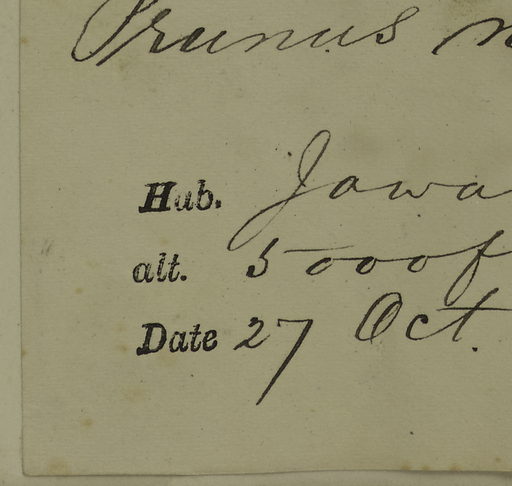 Prunus
Hab. Jawa
alt. 5000f
Date 27 Oct.